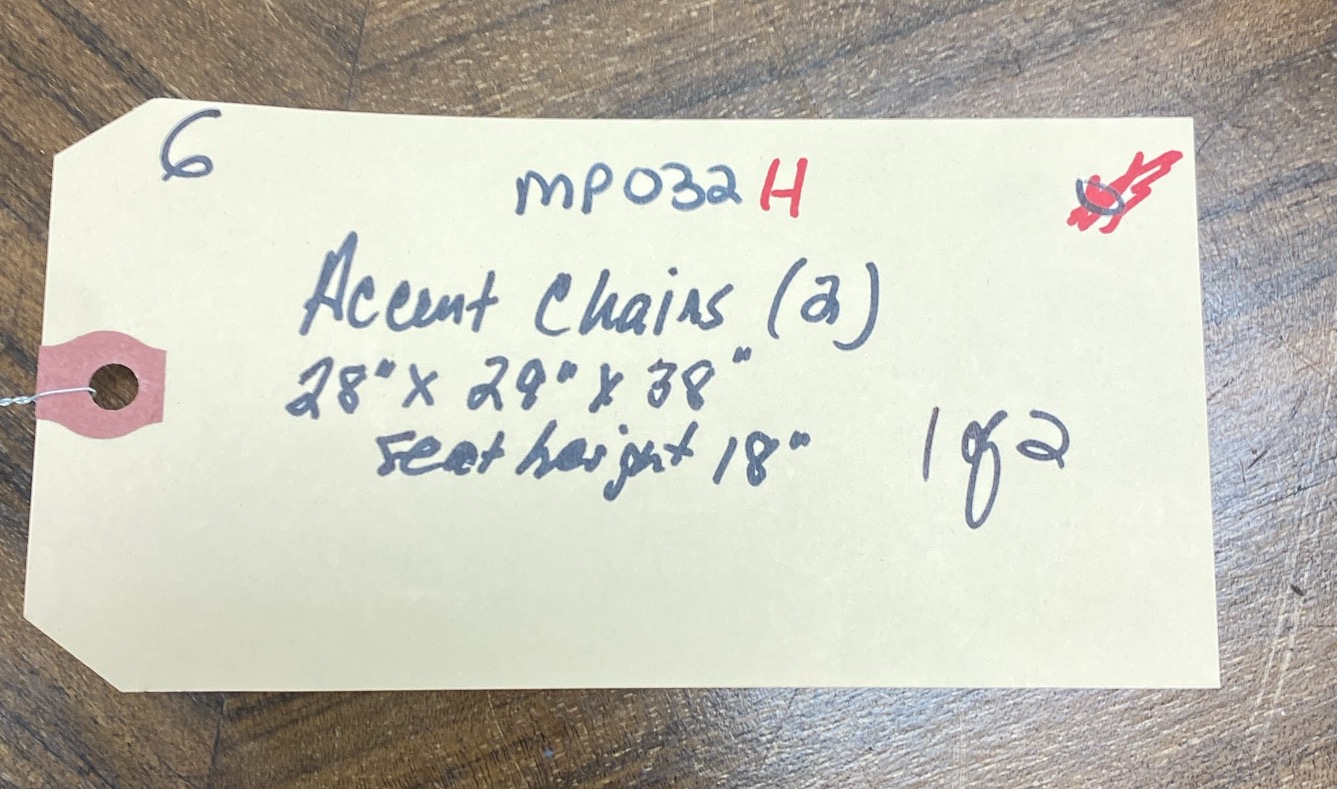 6
MP032H
Accent Chairs (2)
28" x 29" x 38"
seat height 18"
1 of 2